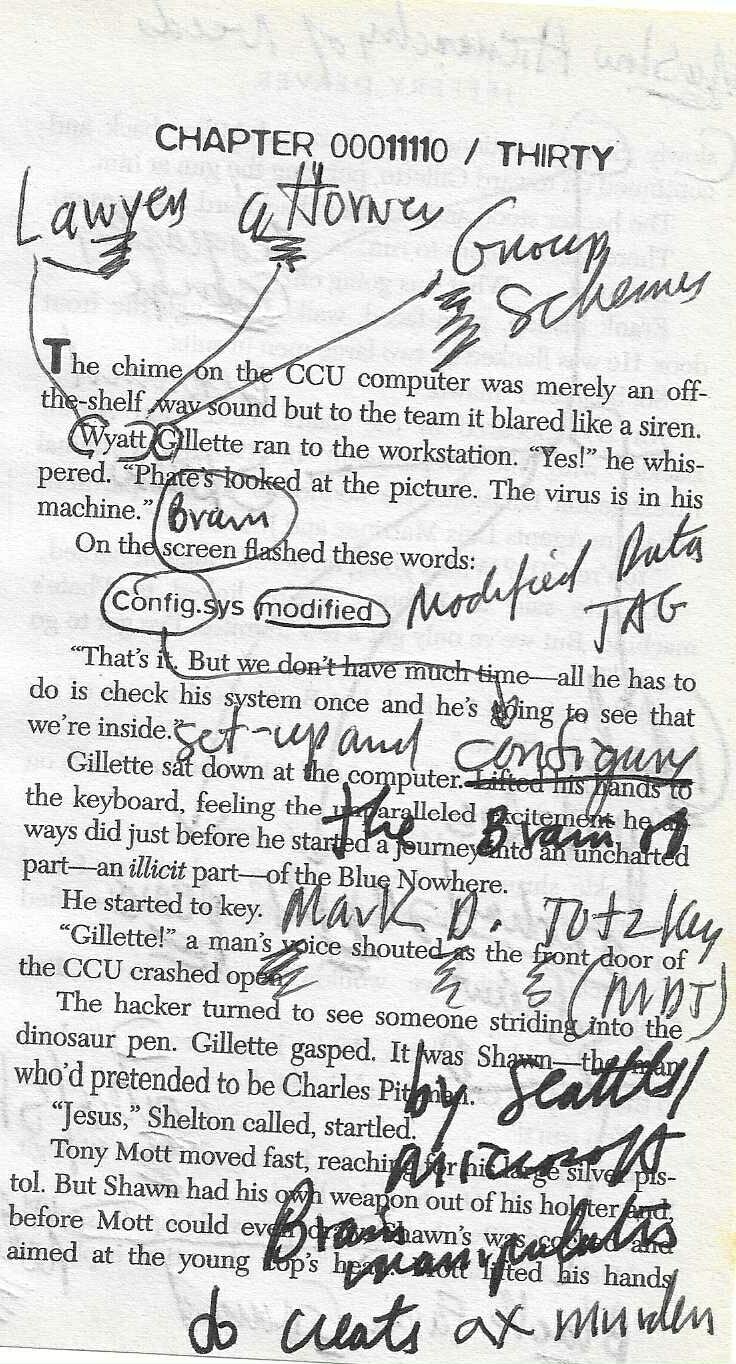 CHAPTER 00011110 / THIRTY
Lawyers attorney
Group
Schemes
The chime on the CCU computer was merely an off-
the-shelf .wav sound but to the team it blared like a siren.
Wyatt Gillette ran to the workstation. “Yes!” he whis-
pered. “Phate’s looked at the picture. The virus is in his
machine.”
Brain
On the screen flashed these words:
Config.sys modified
Modified Data
TAG
“That’s it. But we don’t have much time—all he has to
do is check his system once and he’s going to see that
we’re inside.”
set-up and configure
Gillette sat down at the computer. Lifted his hands to
the keyboard, feeling the unparalleled excitement he al-
the Brain of
ways did just before he started a journey into an uncharted
part—an illicit part—of the Blue Nowhere.
He started to key.
Mark D. Totzkay
“Gillette!” a man’s voice shouted as the front door of
the CCU crashed open.
(MDT)
The hacker turned to see someone striding into the
dinosaur pen. Gillette gasped. It was Shawn—the man
who’d pretended to be Charles Pittman.
by Seattle/
“Jesus,” Shelton called, startled.
Microsoft
Tony Mott moved fast, reaching for his large silver pis-
tol. But Shawn had his own weapon out of his holster and,
before Mott could even draw, Shawn’s was cocked and
Brain manipulates
aimed at the young cop’s head. Mott lifted his hands
to create ax murder